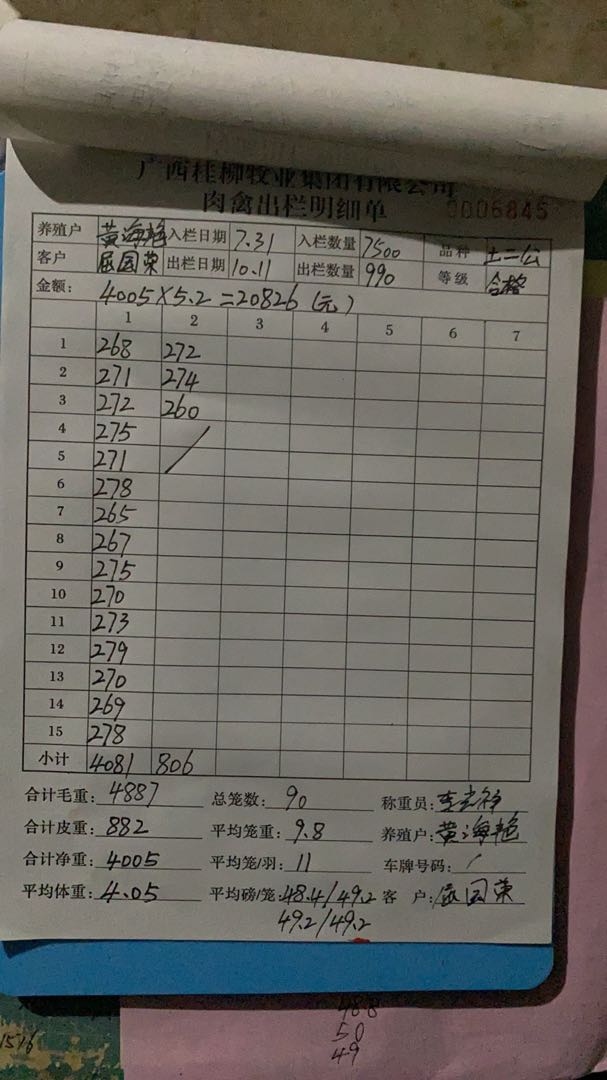 广西桂柳牧业集团有限公司
肉禽出栏明细单 0006845
养殖户 黄海艳 入栏日期 7.31 入栏数量 7500 品种 土二公
客户 屈国荣 出栏日期 10.11 出栏数量 990 等级 合格
金额: 4005×5.2=20826(元)
1 2 3 4 5 6 7
1 268 272
2 271 274
3 272 260
4 275
5 271
6 278
7 265
8 267
9 275
10 270
11 273
12 279
13 270
14 269
15 278
小计 4081 806
合计毛重: 4887 总笼数: 90 称重员:
合计皮重: 882 平均笼重: 9.8 养殖户: 黄海艳
合计净重: 4005 平均笼/羽: 11 车牌号码: /
平均体重: 4.05 平均磅/笼: 48.4/49.2 客户: 屈国荣
49.2/49.2
488
50
49
1516